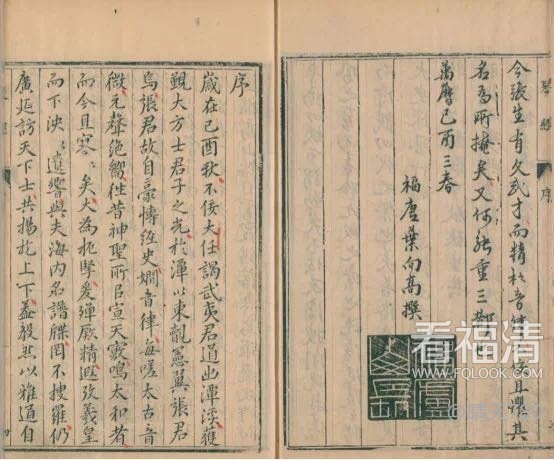 琴經
序
今張生有文武才而精於音
且
其
名為所掩矣又何能重三
萬曆己酉三春
福唐葉向高撰
序
歲在己酉秋不佞大任謁武夷君道出潭
獲
覩大方士君子之光於潭以東
憲翼張君
焉張君故自豪慱經史嫺音律每嗟太古音
微元聲絶
徃昔神聖所㠯宣天竅鳴太和者
而今且寥〻矣大為扼掔爰殫厥精遐攷羲皇
而下泱〻遺響與夫海内名譜牒罔不搜羅仍
廣延訪天下士共揚扢上下益毅然以雅道自
看福清
WWW.FQLOOK.COM